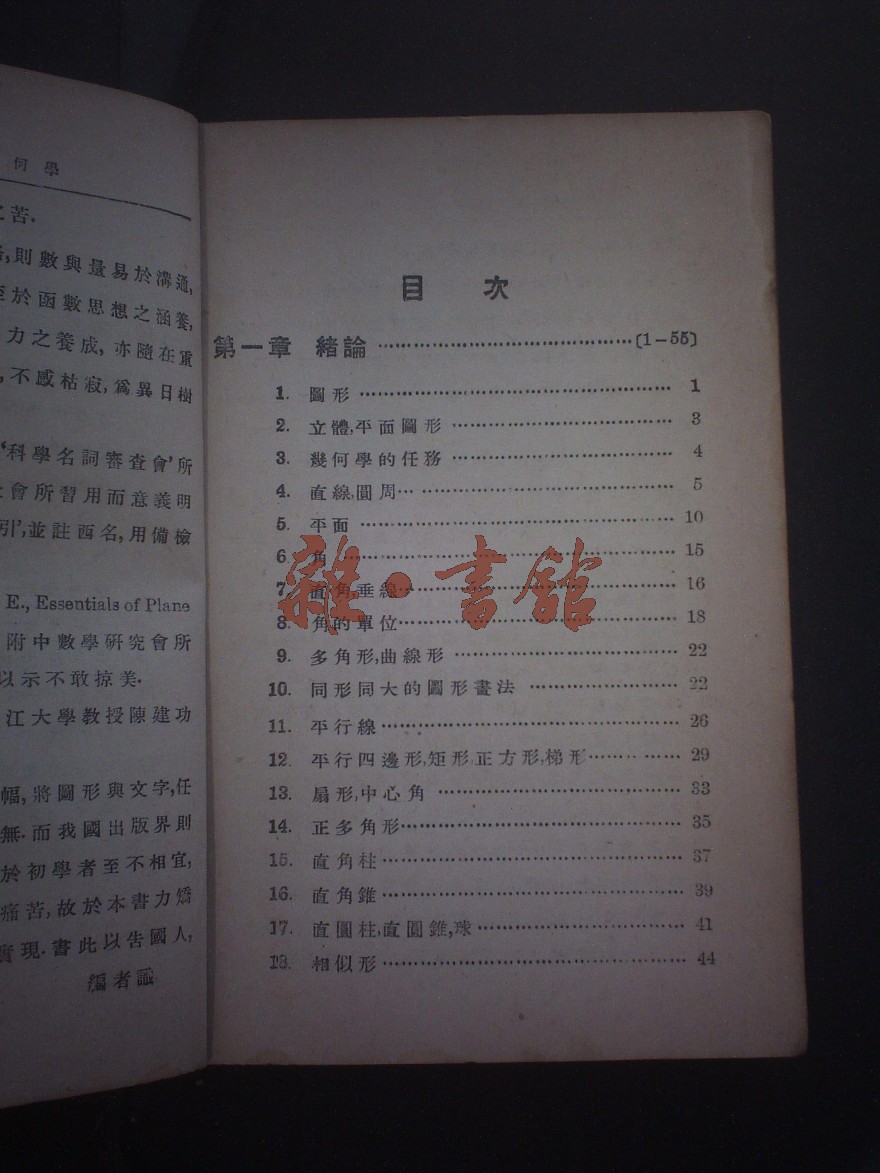 何學
之苦.
則數與量易於溝通,
至於函數思想之涵養,
力之養成, 亦隨在重
不感枯寂, 爲異日樹
‘科學名詞審查會’所
會所習用而意義明
引’, 並註西名, 用備檢
E., Essentials of Plane
附中數學研究會所
以示不敢掠美.
江大學教授陳建功
幅, 將圖形與文字, 任
無. 而我國出版界則
於初學者至不相宜,
痛苦, 故於本書力矯
實現. 書此以告國人,
編者識
目 次
第一章 緒論 ……………………………… [1-55]
1. 圖形 ……………………………… 1
2. 立體, 平面圖形 ……………………………… 3
3. 幾何學的任務 ……………………………… 4
4. 直線, 圓周 ……………………………… 5
5. 平面 ……………………………… 10
6. 角 ……………………………… 15
7. 直角垂線 ……………………………… 16
8. 角的單位 ……………………………… 18
9. 多角形, 曲線形 ……………………………… 22
10. 同形同大的圖形畫法 ……………………………… 22
11. 平行線 ……………………………… 26
12. 平行四邊形, 矩形, 正方形, 梯形 ……………………………… 29
13. 扇形, 中心角 ……………………………… 33
14. 正多角形 ……………………………… 35
15. 直角柱 ……………………………… 37
16. 直角錐 ……………………………… 39
17. 直圓柱, 直圓錐, 球 ……………………………… 41
18. 相似形 ……………………………… 44
雜·書館